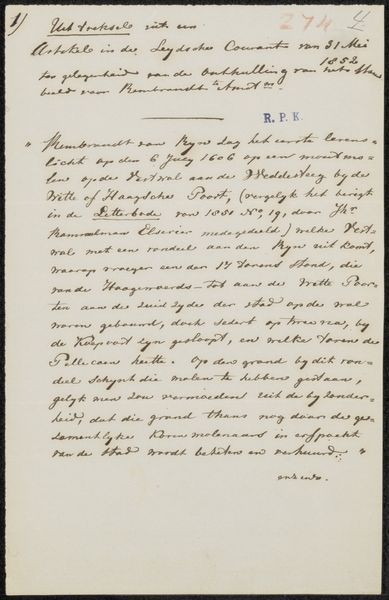 1) Uittreksel uit een 274 4
Artikel in de Leydsche Courant van 31 Mei
1852
ter gelegenheid van de onthulling van het Stand
beeld voor Rembrandt te Amstm.
R. P. K.
" Rembrandt van Ryn zag het eerste levens-
licht op den 6 July 1606 op een moutmo-
len op de Vestwal aan de Weddesteeg by de
Witte of Haagsche Poort, (vergelyk het berigt
in de Letterbode van 1851 No. 19, door Jhr.
Rammelman Elsevier medegedeeld) welke Vest
wal met een rondeel aan den Ryn uit komt,
waarop vroeger een der 17 torens stond, die
van de Hoogewoerds- tot aan de Witte Poor-
ten aan de zuid zyde der stad op de wal
waren gebouwd, doch sedert op twee na, by
de Koepoort zyn gesloopt, en welke toren de
Pellecaen heette. Op den grond by dit ron-
deel schynt die molen te hebben gestaan,
gelyk men zou vermoeden uit de byzonder-
heid, dat die grond thans nog door de ge-
zamentlyke Korenmolenaars in erfpacht
van de stad wordt bezeten en verhuurd. "
enz enz.